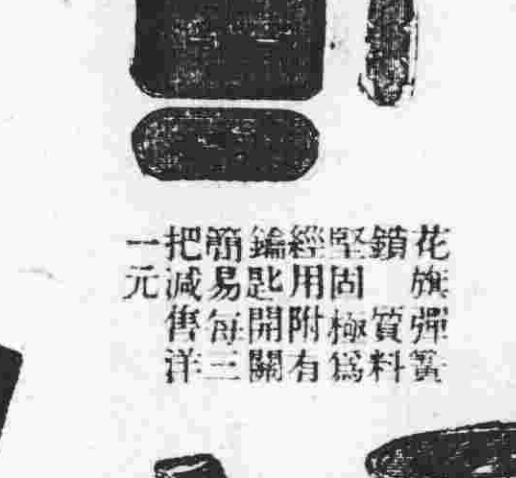 花旗彈簧
鎖 質料
堅固極爲
經用附有
鑰匙開關
簡易每三
把減售洋
一元